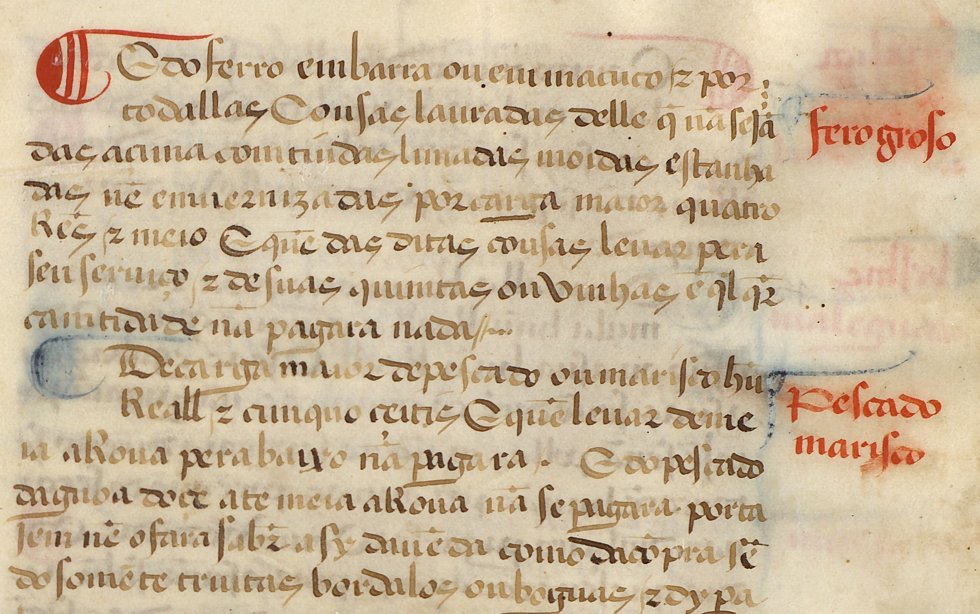 E do ferro em barra ou em maçuco / z por
todallas Cousas lauradas delle q̃ nã sejã
fero groso
das acima contiudas limadas moidas estanha
das nẽ emuernizadas por carga maior quatro
Rẽs / z meio E quẽ das ditas cousas leuar pera
seu seruiço / z de suas quimtas ou vinhas e q̃l q̃r
camtidade nã pagara nada /
De carga maior de pescado ou marisco hũ
Pescado
Reall z cimquo ceitis E quẽ leuar de me
ia aRoua pera baixo nã pagara . E do pescado
marisco
daguoa doce ate meia aRoua nã se pagara porta
Jem nẽ o fara sabr̃ asy da uẽda como da cõpra sẽ
do somẽte truitas bordalos ou boguas / z dy pa